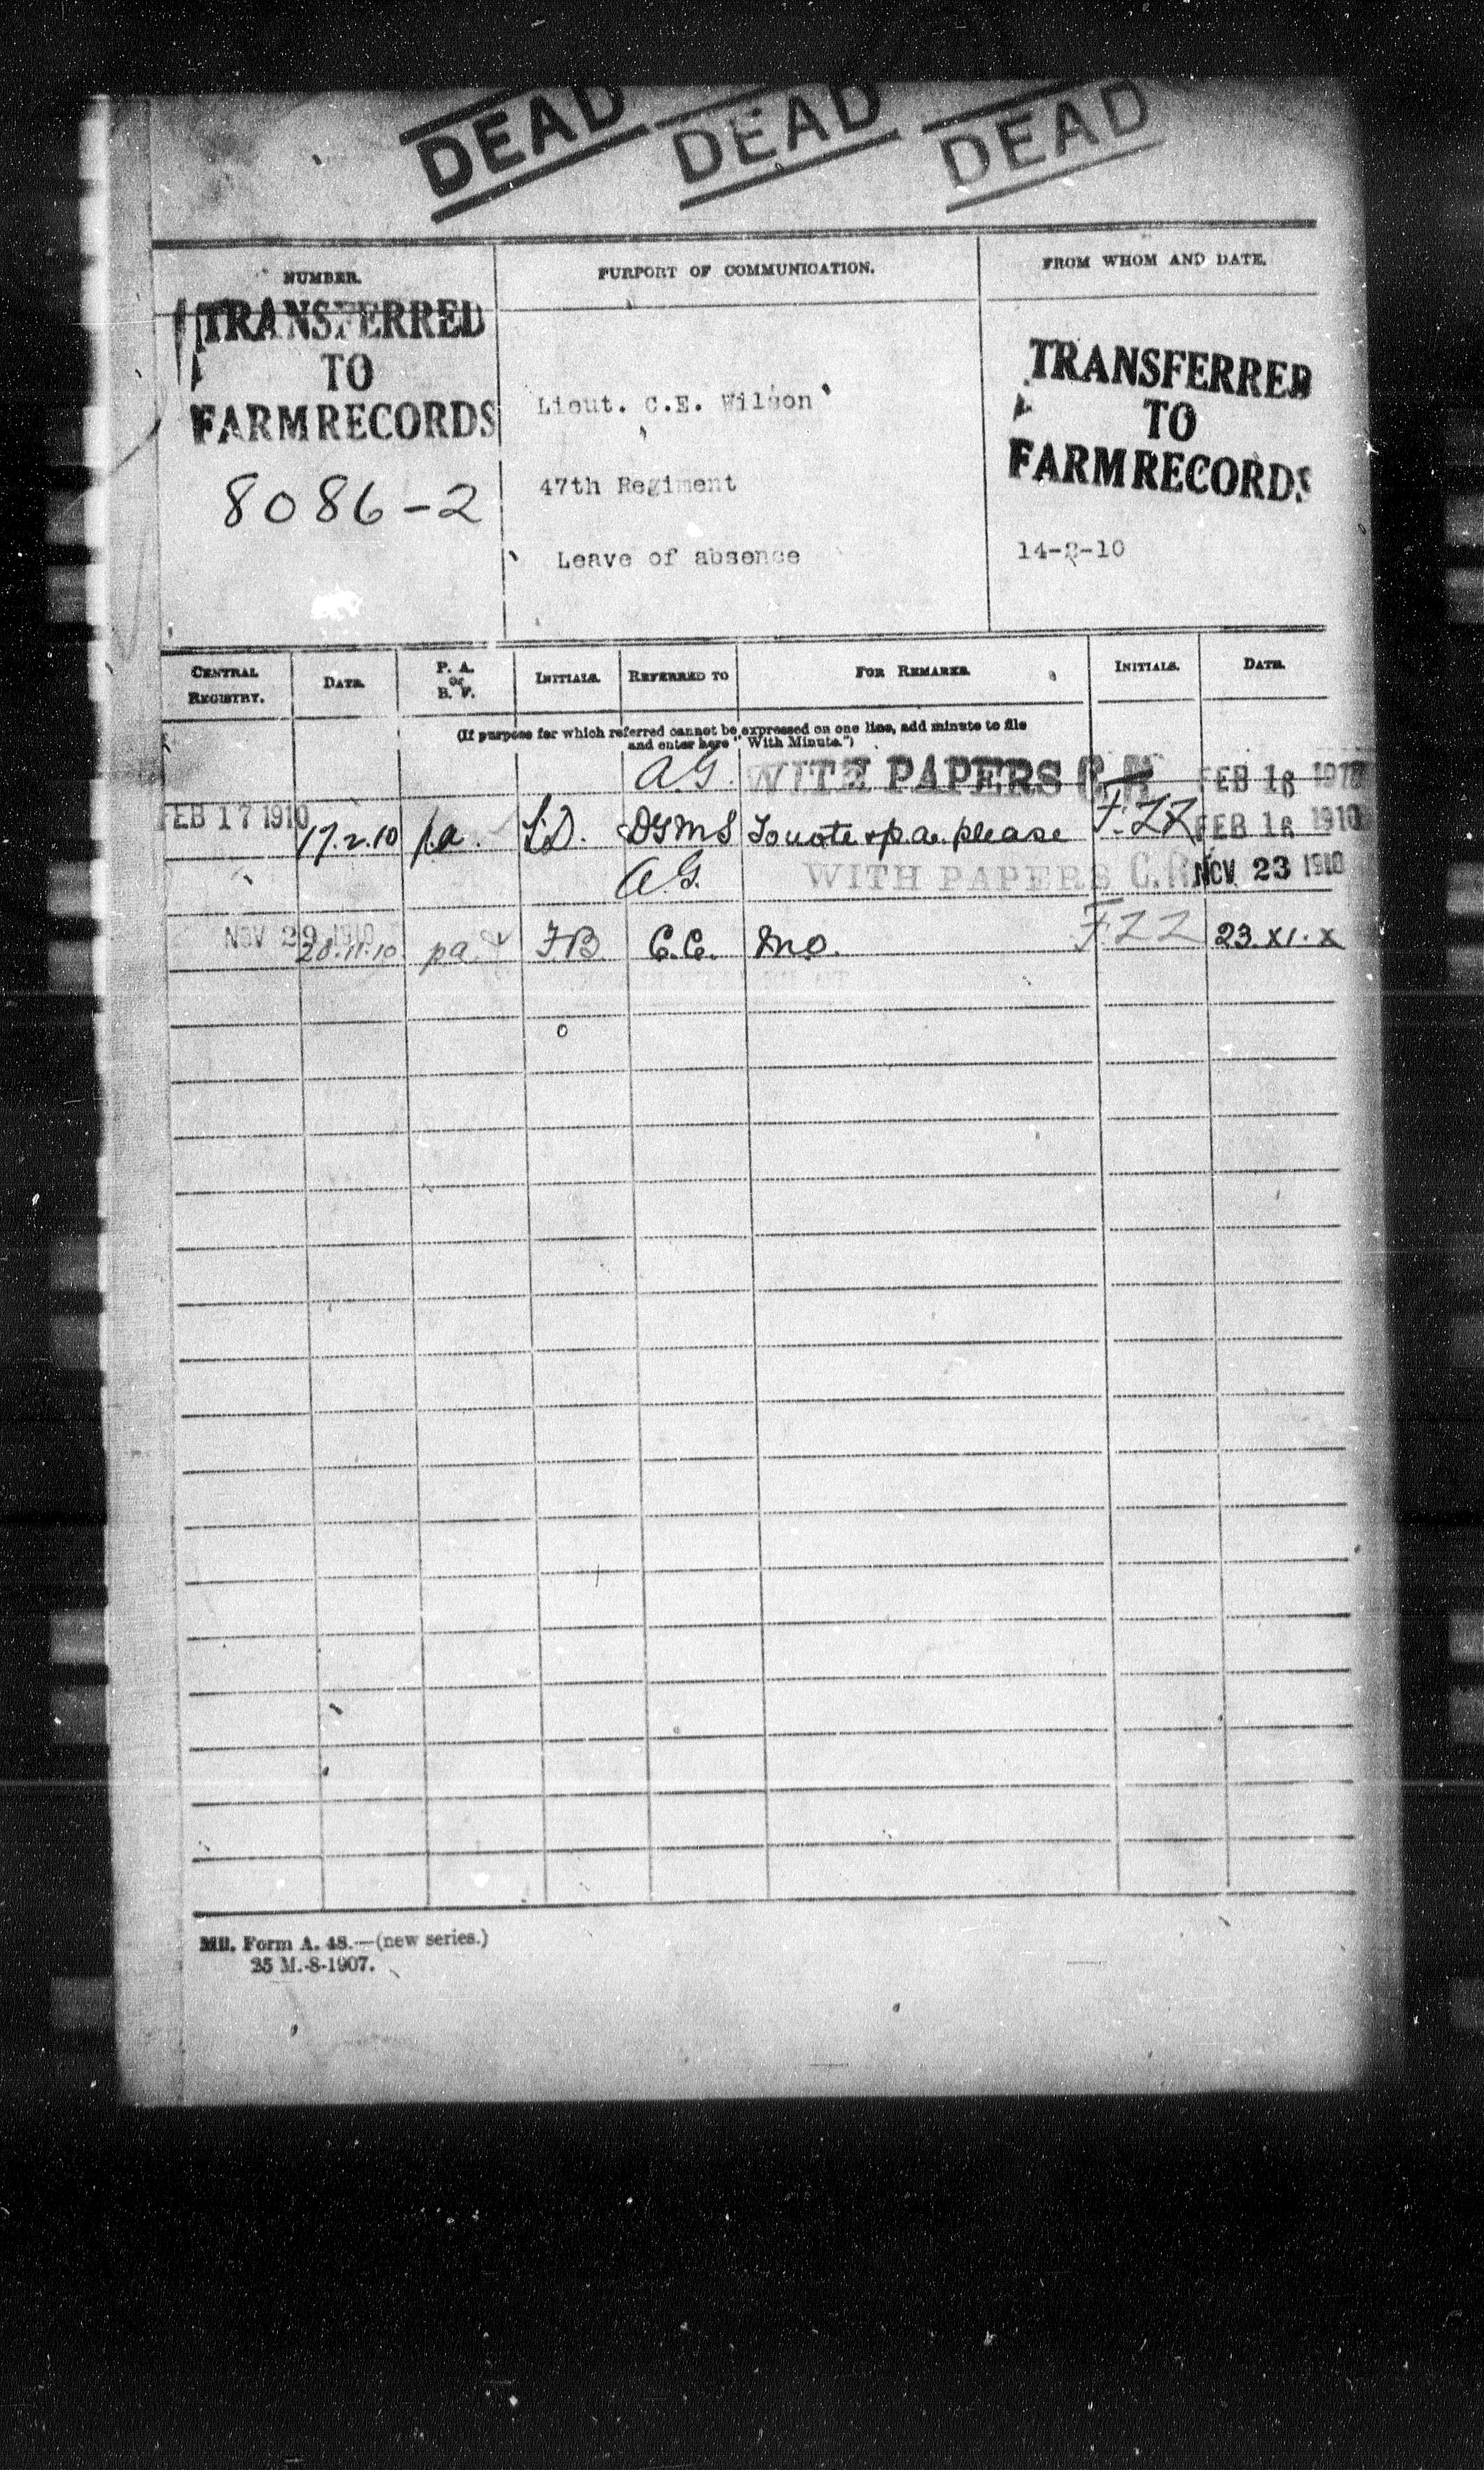 DEAD DEAD DEAD
NUMBER. PURPORT OF COMMUNICATION. FROM WHOM AND DATE.
TRANSFERRED
TO
FARM RECORDS
8086-2
Lieut. C.E. Wilson
47th Regiment
Leave of absence
TRANSFERRED
TO
FARM RECORDS
14-2-10
CENTRAL REGISTRY. DATE. P. A. or B. F. INITIALS. REFERRED TO FOR REMARKS. INITIALS. DATE.
(If purpose for which referred cannot be expressed on one line, add minute to file
and enter here "With Minute.")
A.G. WITH PAPERS C.R. FEB 16 1910
FEB 17 1910 17.2.10 p.a. DGMS To note & p.a. please FEB 16 1910
A.G. WITH PAPERS C.R. NOV 23 1910
NOV 29 1910 28.11.10 pa. FB C.C. 23.XI.X
Mil. Form A. 48.—(new series.)
25 M.-8-1907.